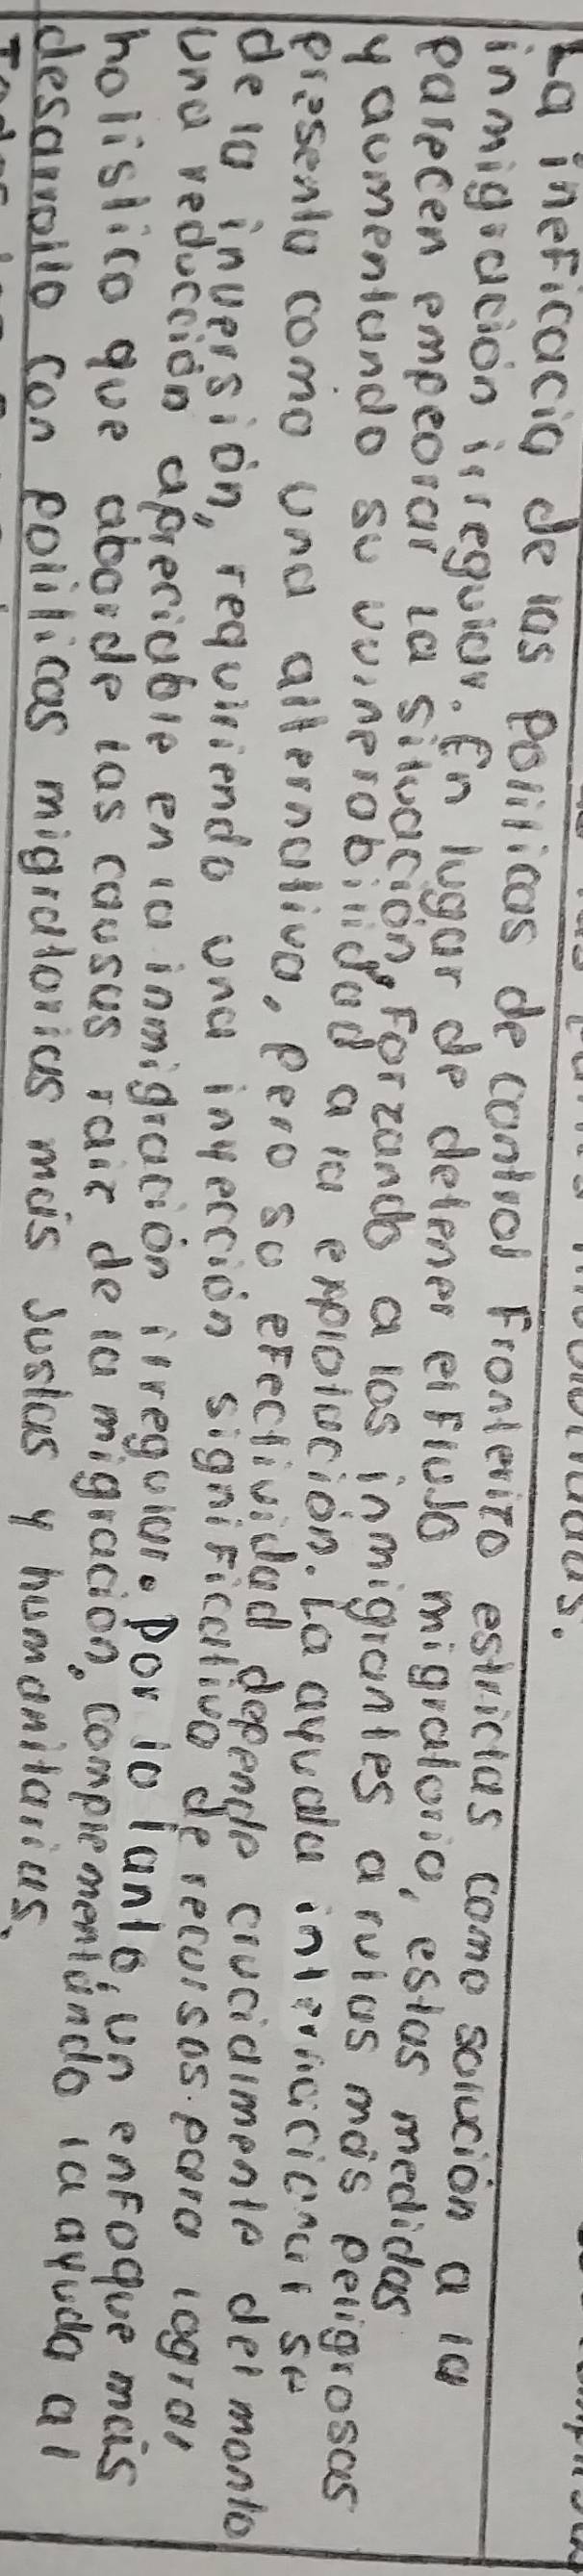 La ineficacia de las políticas de control fronterizo estrictas como solución a la
inmigración irregular. En lugar de detener el flujo migratorio, estas medidas
parecen empeorar la situación, forzando a los inmigrantes a rutas más peligrosas
y aumentando su vulnerabilidad a la explotación. La ayuda internacional se
presenta como una alternativa, pero su efectividad depende crucialmente del monto
de la inversión, requiriendo una inyección significativa de recursos para lograr
una reducción apreciable en la inmigración irregular. Por lo tanto, un enfoque más
holístico que aborde las causas raíz de la migración, complementando la ayuda al
desarrollo con políticas migratorias más justas y humanitarias.